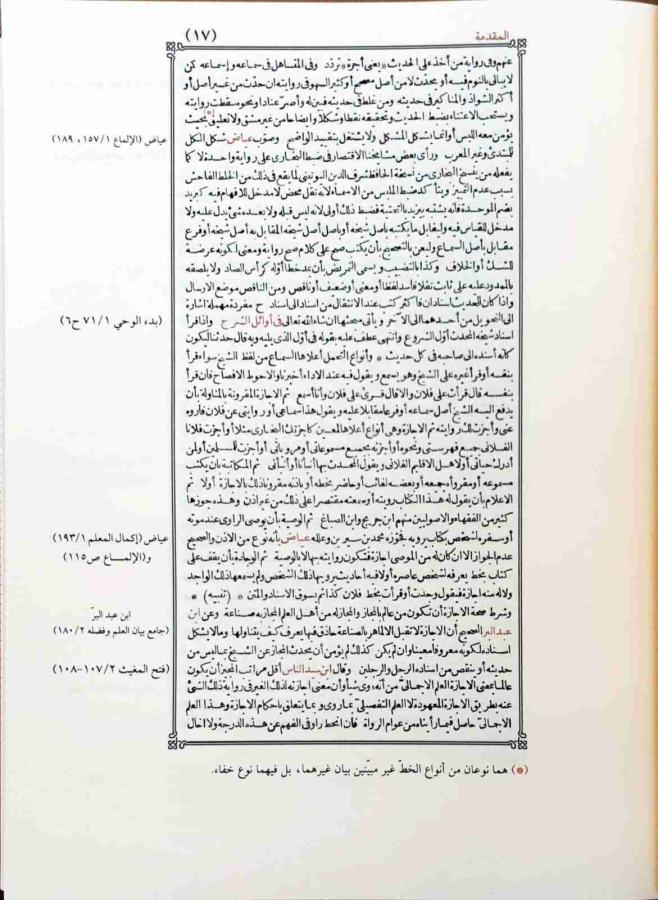 المقدمة
(١٧)
عنهم وفى رواية من أخذ على الحديث يعنى أجرة تردّد وفى المتساهل فى سماعه وإسماعه كمن
لا يبالى بالنوم فيه أو يحدّث لا من أصل مصحح أو كثير السهو فى روايته ان حدّث من غير أصل أو
أكثر الشواذ والمناكير فى حديثه ومن غلط فى حديثه فبين له وأصرّ عنادا ونحوه سقطت روايته
ويستحب الاعتناء بضبط الحديث وتحقيقه نقطا وشكلا وايضاحا من غير مشق ولا تعليق بحيث
يؤمن معه اللبس أو انما يشكل المشكل ولا يشتغل بتقييد الواضح وصوّب عياض شكل الكل
للمبتدئ وغير المعرب ورأى بعض مشايخنا الاقتصار فى ضبط البخارى على رواية واحدة لا كما
يفعله من ينسخ البخارى من نسخة الحافظ شرف الدين اليونينى لما يقع فى ذلك من الخلط الفاحش
بسبب عدم التمييز ويتأكد ضبط الملبس من الاسماء لانه نقل محض لا مدخل للافهام فيه كبريد
بضم الموحدة فانه يشتبه بيزيد بالتحتية فضبط ذلك أولى لانه ليس قبله ولا بعده شئ يدل عليه ولا
مدخل للقياس فيه وليقابل ما يكتبه بأصل شيخه أو بأصل أصل شيخه المقابل به أصل شيخه أو فرع
مقابل بأصل السماع وليعن بالتصحيح بأن يكتب صح على كلام صح رواية ومعنى لكونه عرضة
للشك أو الخلاف وكذا بالتضبيب ويسمى التمريض بأن يمد خطا أوّله كرأس الصاد ولا يلصقه
بالممدود عليه على ثابت نقلا فاسد لفظا أو معنى أو ضعيف أو ناقص ومن الناقص موضع الارسال
واذا كان للحديث اسنادان فأكثر كتب عند الانتقال من اسناد الى اسناد ح مفردة مهملة اشارة
الى التحويل من أحدهما الى الآخر ويأتى مبحثها ان شاء الله تعالى فى أوائل الشرح واذا قرأ
اسناد شيخه المحدّث أوّل الشروع وانتهى عطف عليه بقوله فى أوّل الذى يليه وبه قال حدثنا ليكون
كأنه أسنده الى صاحبه فى كل حديث * وأنواع التحمل أعلاها السماع من لفظ الشيخ سواء قرأ
بنفسه أو قرأ غيره على الشيخ وهو يسمع ويقول فيه عند الاداء أخبرنا والاحوط الافصاح فان قرأ
بنفسه قال قرأت على فلان والا قال قرئ على فلان وأنا أسمع ثم الاجازة المقرونة بالمناولة بأن
يدفع اليه الشيخ أصل سماعه أو فرعا مقابلا عليه ويقول هذا سماعى أو روايتى عن فلان فاروه
عنى وأجزت لك روايته ثم الاجازة وهى أنواع أعلاها لمعين كأجزتك البخارى مثلا أو أجزت فلانا
الفلانى جميع فهرستى ونحوه أو أجزته بجميع مسموعاتى أو مروياتى أو أجزت للمسلمين أو لمن
أدرك حياتى أو لاهل الاقليم الفلانى ويقول المحدث بها أنبأنا أو أنبأنى ثم المكاتبة بأن يكتب
مسموعه أو مقروأه جميعه أو بعضه لغائب أو حاضر بخطه أو باذنه مقرونا ذلك بالاجازة أولا ثم
الاعلام بأن يقول له هذا الكتاب رويته أو سمعته مقتصرا على ذلك من غير اذن وهذه جوزها
كثير من الفقهاء والاصوليين منهم ابن جريج وابن الصباغ ثم الوصية بأن يوصى الراوى عند موته
أو سفره لشخص بكتاب يرويه فجوّزه محمد بن سيرين وعلله عياض بأنه نوع من الاذن والصحيح
عدم الجواز الا ان كان له من الموصى اجازة فتكون روايته بها لا بالوصية ثم الوجادة بأن يقف على
كتاب بخط يعرفه لشخص عاصره أولا فيه أحاديث يرويها ذلك الشخص ولم يسمعها ذلك الواجد
ولا له منه اجازة فيقول وجدت أو قرأت بخط فلان كذا ثم يسوق الاسناد والمتن * (تنبيه) *
وشرط صحة الاجازة أن تكون من عالم بالمجاز والمجاز له من أهل العلم المجاز به صناعة وعن ابن
عبد البر الصحيح أن الاجازة لا تقبل الا لماهر بالصناعة حاذق فيها يعرف كيف يتناولها وما لا يشكل
اسناده لكونه معروفا معينا وان لم يكن كذلك لم يؤمن أن يحدث المجاز عن الشيخ بما ليس من
حديثه أو ينقص من اسناده الرجل والرجلين وقال ابن سيد الناس أقل مراتب المجيز أن يكون
عالما بمعنى الاجازة العلم الاجمالىّ من أنه روى شيأ وأن معنى اجازته لذلك الغير فى رواية ذلك الشئ
عنه بطريق الاجازة المعهودة لا العلم التفصيلىّ بما روى وبما يتعلق بأحكام الاجازة وهذا العلم
الاجمالىّ حاصل فيما رأيناه من عوام الرواة فان انحط راوفى الفهم عن هذه الدرجة ولا اخال
عياض (الإلماع ١٥٧/١، ١٨٩)
(بدء الوحي ٧١/١ ح٦)
عياض (إكمال المعلم ١٩٣/١)
و(الإلمـــاع ص١١٥)
ابن عبد البرّ
(جامع بيان العلم وفضله ١٨٠/٢)
(فتح المغيث ١٠٧/٢-١٠٨)
(*) هما نوعان من أنواع الخطّ غير مبيّنين بيان غيرهما، بل فيهما نوع خفاء.